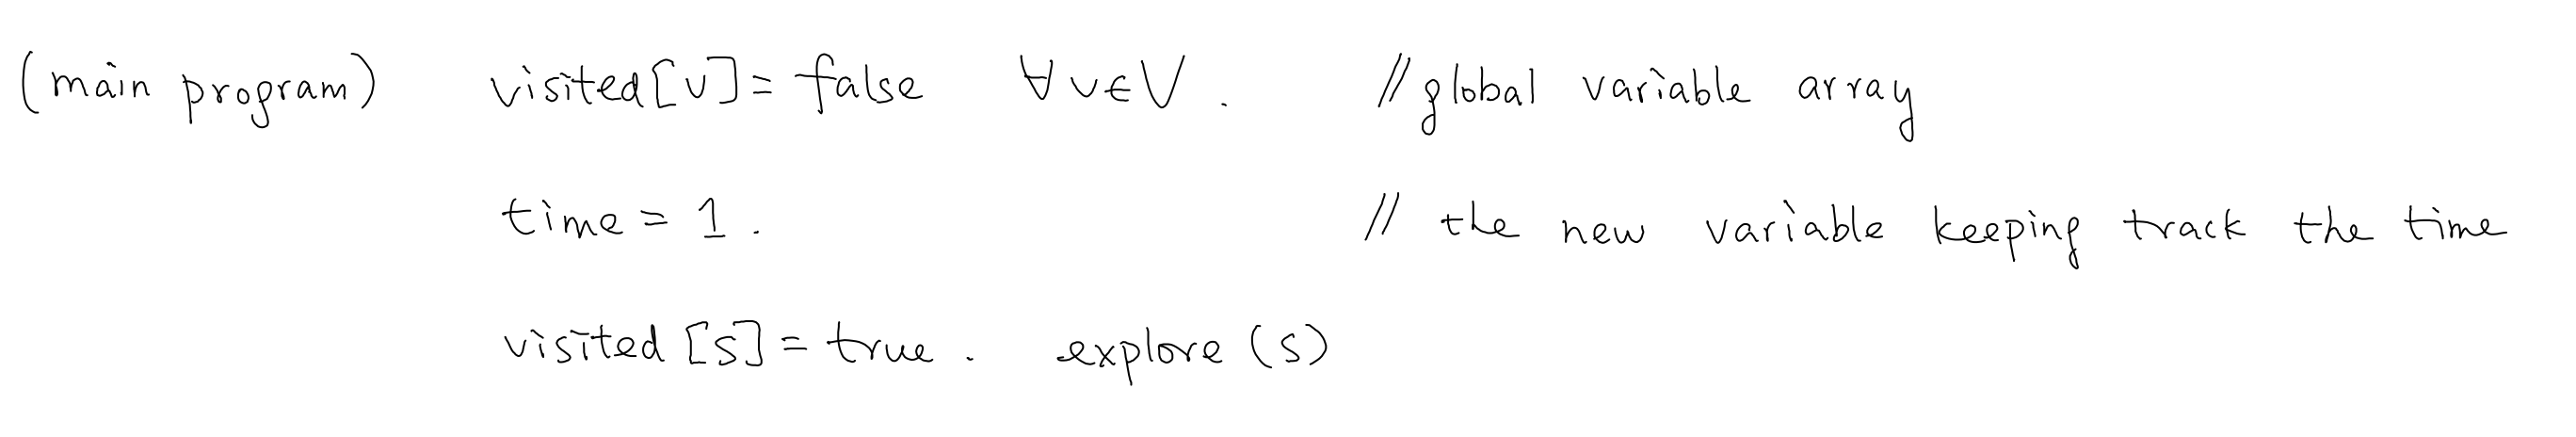 (main program) visited[v]= false ∀v∈V. //global variable array
time = 1. // the new variable keeping track the time
visited [s]= true. explore (s)